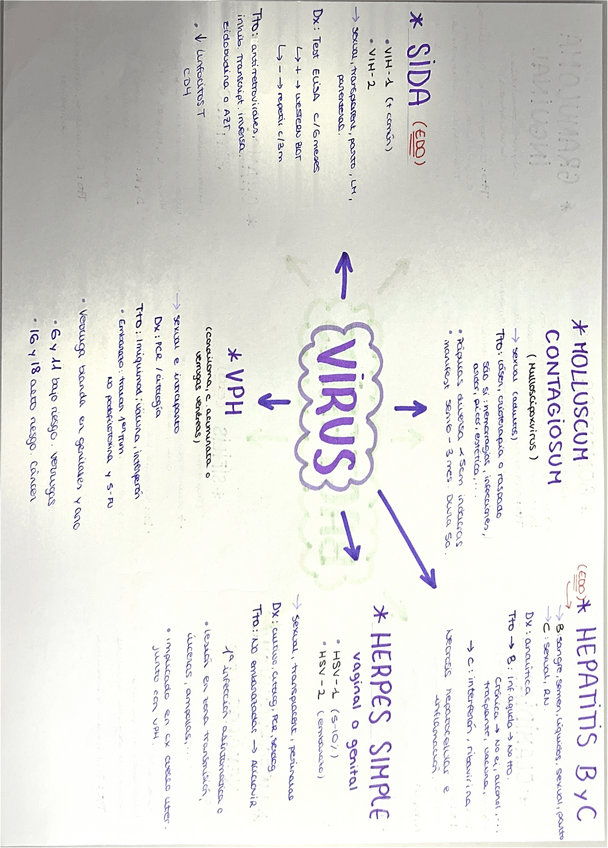 VIRUS
* SIDA (EDO)
• VIH-1 (+ común)
• VIH-2
→ sexual, transparent, parto, LM,
parenteral.
Dx: Test ELISA c/6 meses
↳ + → Western Blot
↳ - → repetir c/3m
Tto: antirretrovirales,
inhib. Transcript. inversa.
zidovudina o AZT.
• ↓ Linfocitos T
CD4
* MOLLUSCUM
CONTAGIOSUM
(Molluscipoxvirus)
→ sexual (adultos)
Tto: observ, crioterapia o raspado
sólo si hemorragias, infecciones,
ardor, picor, estética,...
• Pápulas diversa < 5mm indoloras
manifest 2sem - 3 mes. Dura 5a.
* HEPATITIS B y C
(EDO)
→ B: sangre, semen, líquidos, sexual, parto
→ C: sexual, RN
Dx: analítica
Tto → B: inf. aguda → No tto.
Crónica → No ej, alcohol,...
trasplante, vacuna,
→ C: interferón, ribavirina
Necrosis hepatocelular e
inflamación
* VPH
(condiloma, c. acuminata o
verrugas venéreas)
→ sexual e intraparto
Dx: PCR / citología
Tto: Imiquimod, vacuna, interferón
• Embarazo: tricloro 1er Trim
No podofilotoxina y 5-FU
• Verruga blanda en genitales y ano
• 6 y 11 bajo riesgo, verrugas
• 16 y 18 alto riesgo cáncer
* HERPES SIMPLE
vaginal o genital
• HSV-1 (5-10%)
• HSV-2 (embarazo)
→ sexual, transparent, perinatal
Dx: cultivo, citolog, PCR, serolog
Tto: No embarazadas → Aciclovir
1ª infección asintomática o
• Lesión en zona transmisión,
úlceras, ampollas,...
• implicado en cx cuello uter.
junto con VPH